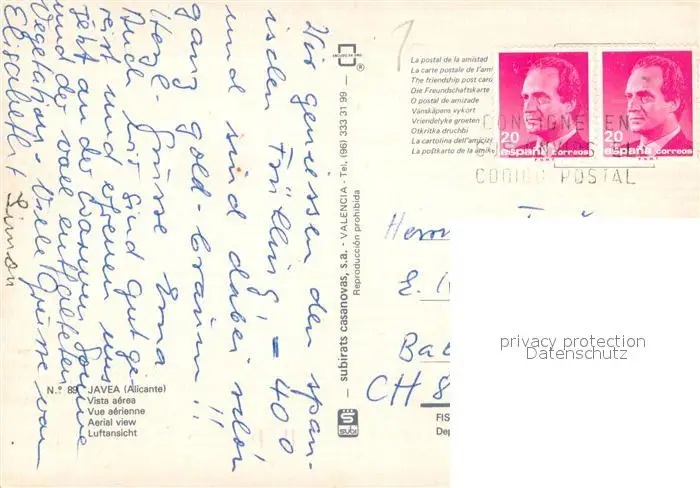 Wir geniessen den span-
ischen Frühling, – 400
und sind dabei schon
ganz gold-braun!!
Herzl. Grüsse Erna
Auch wir sind gut ge-
reist und freuen uns
jetzt an der warmen Sonne
und der voll entfalteten
Vegetation – Viele Grüsse von
Elisabeth Simon
N.° 89 JAVEA (Alicante)
Vista aérea
Vue aérienne
Aerial view
Luftansicht
subirats casanovas, s.a. - VALENCIA - Tel. (96) 333 31 99 -
Reproducción prohibida
SUBI
La postal de la amistad
La carte postale de l'ami
The friendship post car
Die Freundschaftskarte
O postal de amizade
Vänskåpens vykort
Vriendelijke groeten
Otkritka druchbi
La cartolina dell'amiciz
La poŝtkarto de la amike
20
españa correos
F.N.M.T.
20
españa correos
F.N.M.T.
CONSIGNE EN
CODIGO POSTAL
Herrn
E.
Ba
CH 8
FIS
Dep
privacy protection
Datenschutz